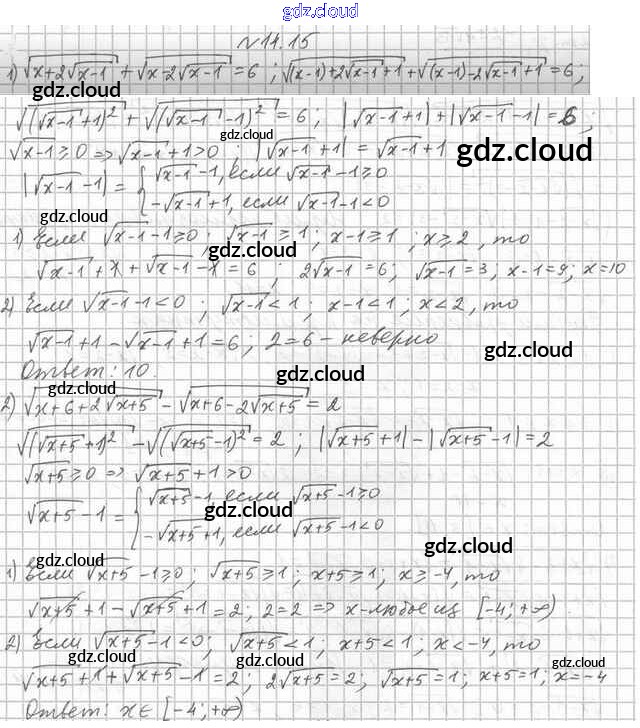 gdz.cloud
№ 11.15
1) √(x+2√(x-1)) + √(x-2√(x-1)) = 6 ; √((x-1)+2√(x-1)+1) + √((x-1)-2√(x-1)+1) = 6;
gdz.cloud
√((√(x-1)+1)²) + √((√(x-1)-1)²) = 6 ; |√(x-1)+1| + |√(x-1)-1| = 6 ;
gdz.cloud
√(x-1) ≥ 0 => √(x-1)+1 > 0 ; |√(x-1)+1| = √(x-1)+1
gdz.cloud
|√(x-1)-1| = { √(x-1)-1, если √(x-1)-1 ≥ 0
-√(x-1)+1, если √(x-1)-1 < 0
gdz.cloud
1) Если √(x-1)-1 ≥ 0 ; √(x-1) ≥ 1 ; x-1 ≥ 1 ; x ≥ 2, то
gdz.cloud
√(x-1) + 1 + √(x-1) - 1 = 6 ; 2√(x-1) = 6, √(x-1) = 3; x-1 = 9; x = 10
2) Если √(x-1)-1 < 0 ; √(x-1) < 1 ; x-1 < 1 ; x < 2, то
gdz.cloud
√(x-1)+1-√(x-1)+1 = 6 ; 2 = 6 - неверно
gdz.cloud
Ответ: 10.
gdz.cloud
gdz.cloud
2) √(x+6+2√(x+5)) - √(x+6-2√(x+5)) = 2
√((√(x+5)+1)²) - √((√(x+5)-1)²) = 2 ; |√(x+5)+1| - |√(x+5)-1| = 2
gdz.cloud
√(x+5) ≥ 0 => √(x+5)+1 > 0
√(x+5)-1 = { √(x+5)-1, если √(x+5)-1 ≥ 0
gdz.cloud
-√(x+5)+1, если √(x+5)-1 < 0
gdz.cloud
gdz.cloud
1) Если √(x+5)-1 ≥ 0; √(x+5) ≥ 1; x+5 ≥ 1; x ≥ -4, то
√(x+5)+1-√(x+5)+1 = 2; 2=2 => x-любое из [-4;+∞)
2) Если √(x+5)-1 < 0; √(x+5) < 1; x+5 < 1; x < -4, то
gdz.cloud
gdz.cloud
gdz.cloud
√(x+5)+1+√(x+5)-1 = 2; 2√(x+5) = 2; √(x+5) = 1; x+5 = 1; x = -4
Ответ: x ∈ [-4;+∞)
gdz.cloud